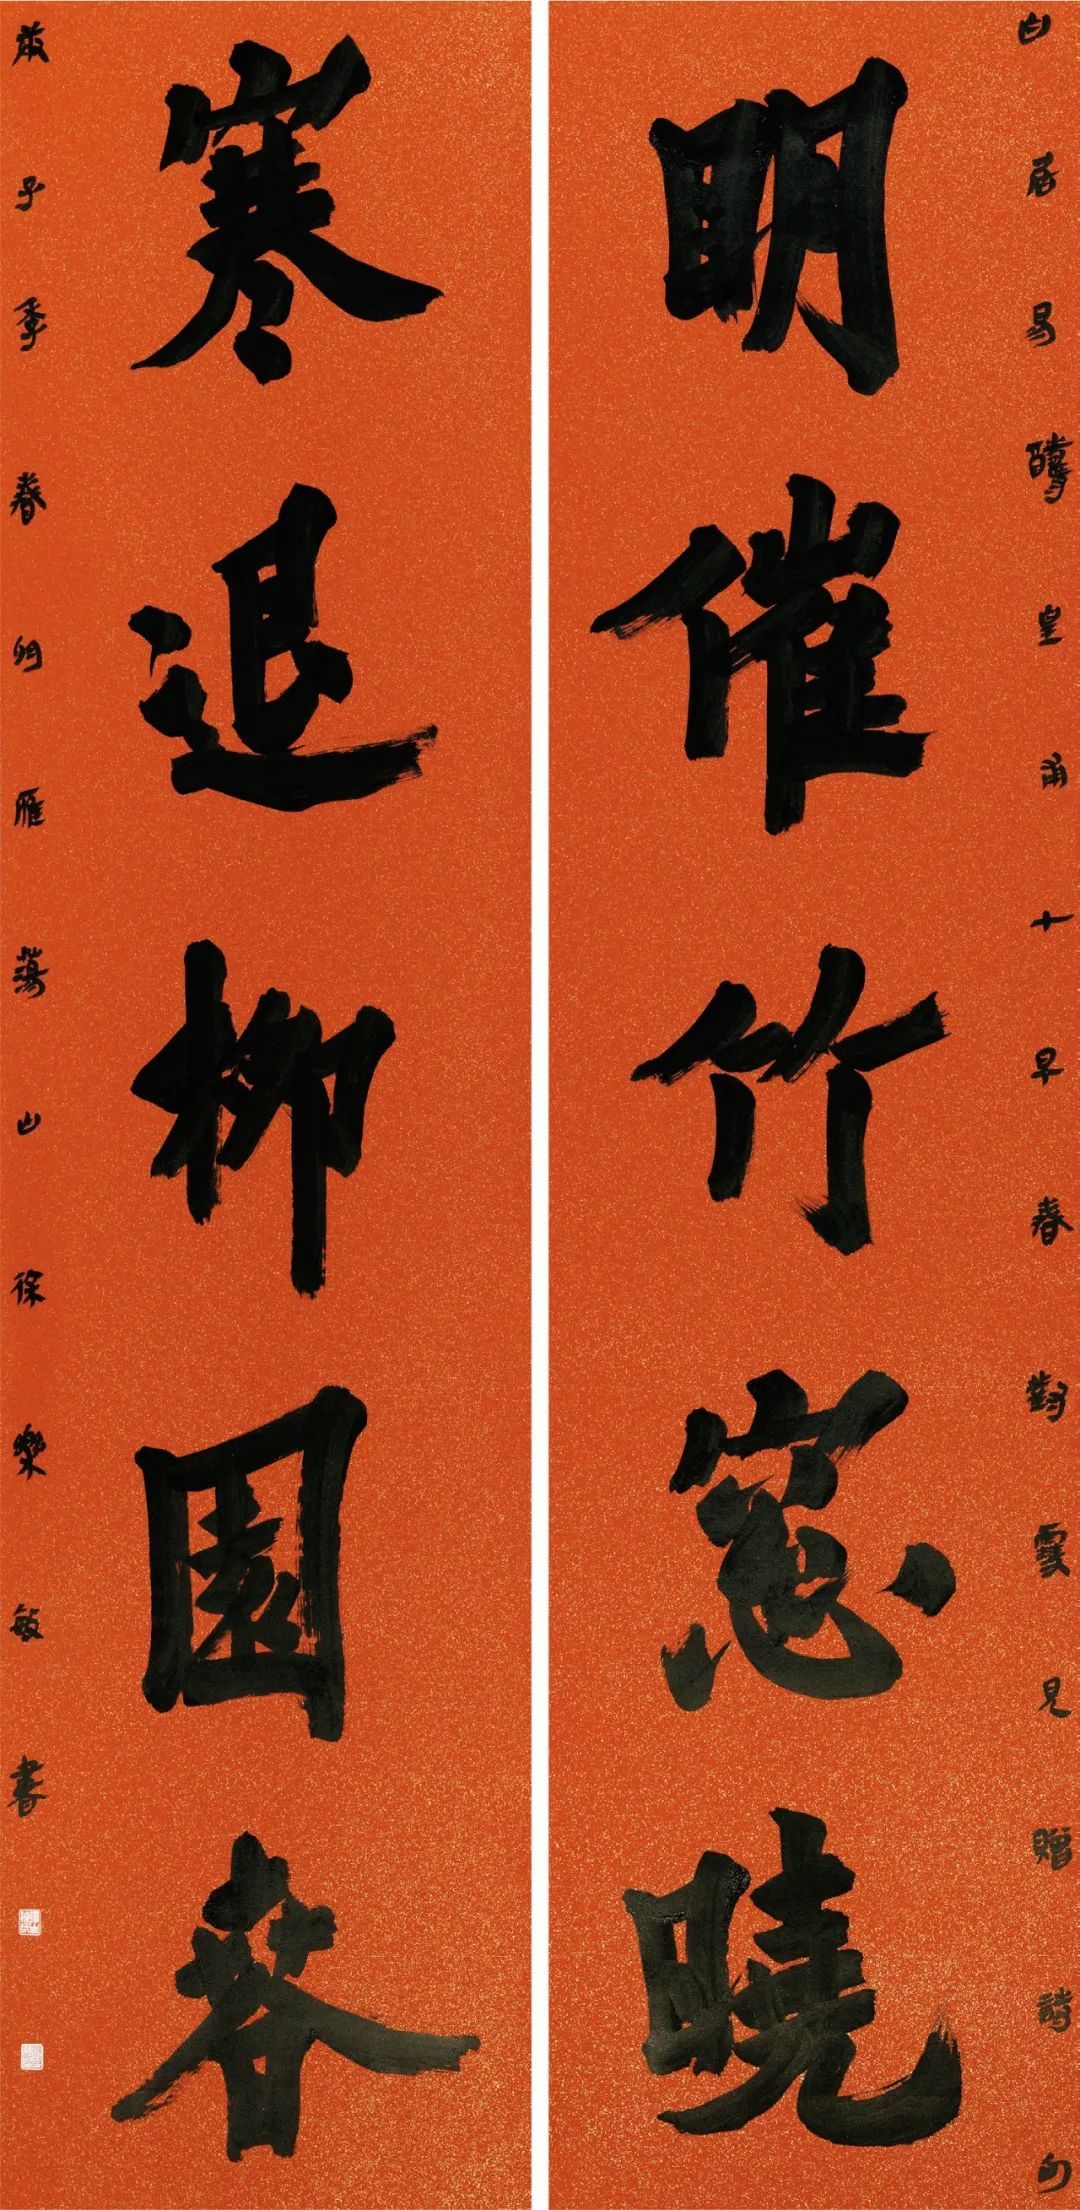 白居易醻皇甫十早春對雪見贈詩句
明催竹窻曉
寒退柳園春
子季春 雁蕩山徐樂敏書